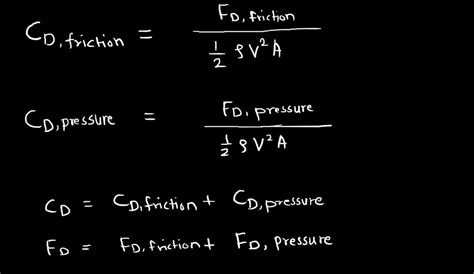 C_D, friction = F_D, friction / (1/2 ρV²A)
C_D, pressure = F_D, pressure / (1/2 ρV²A)
C_D = C_D, friction + C_D, pressure
F_D = F_D, friction + F_D, pressure